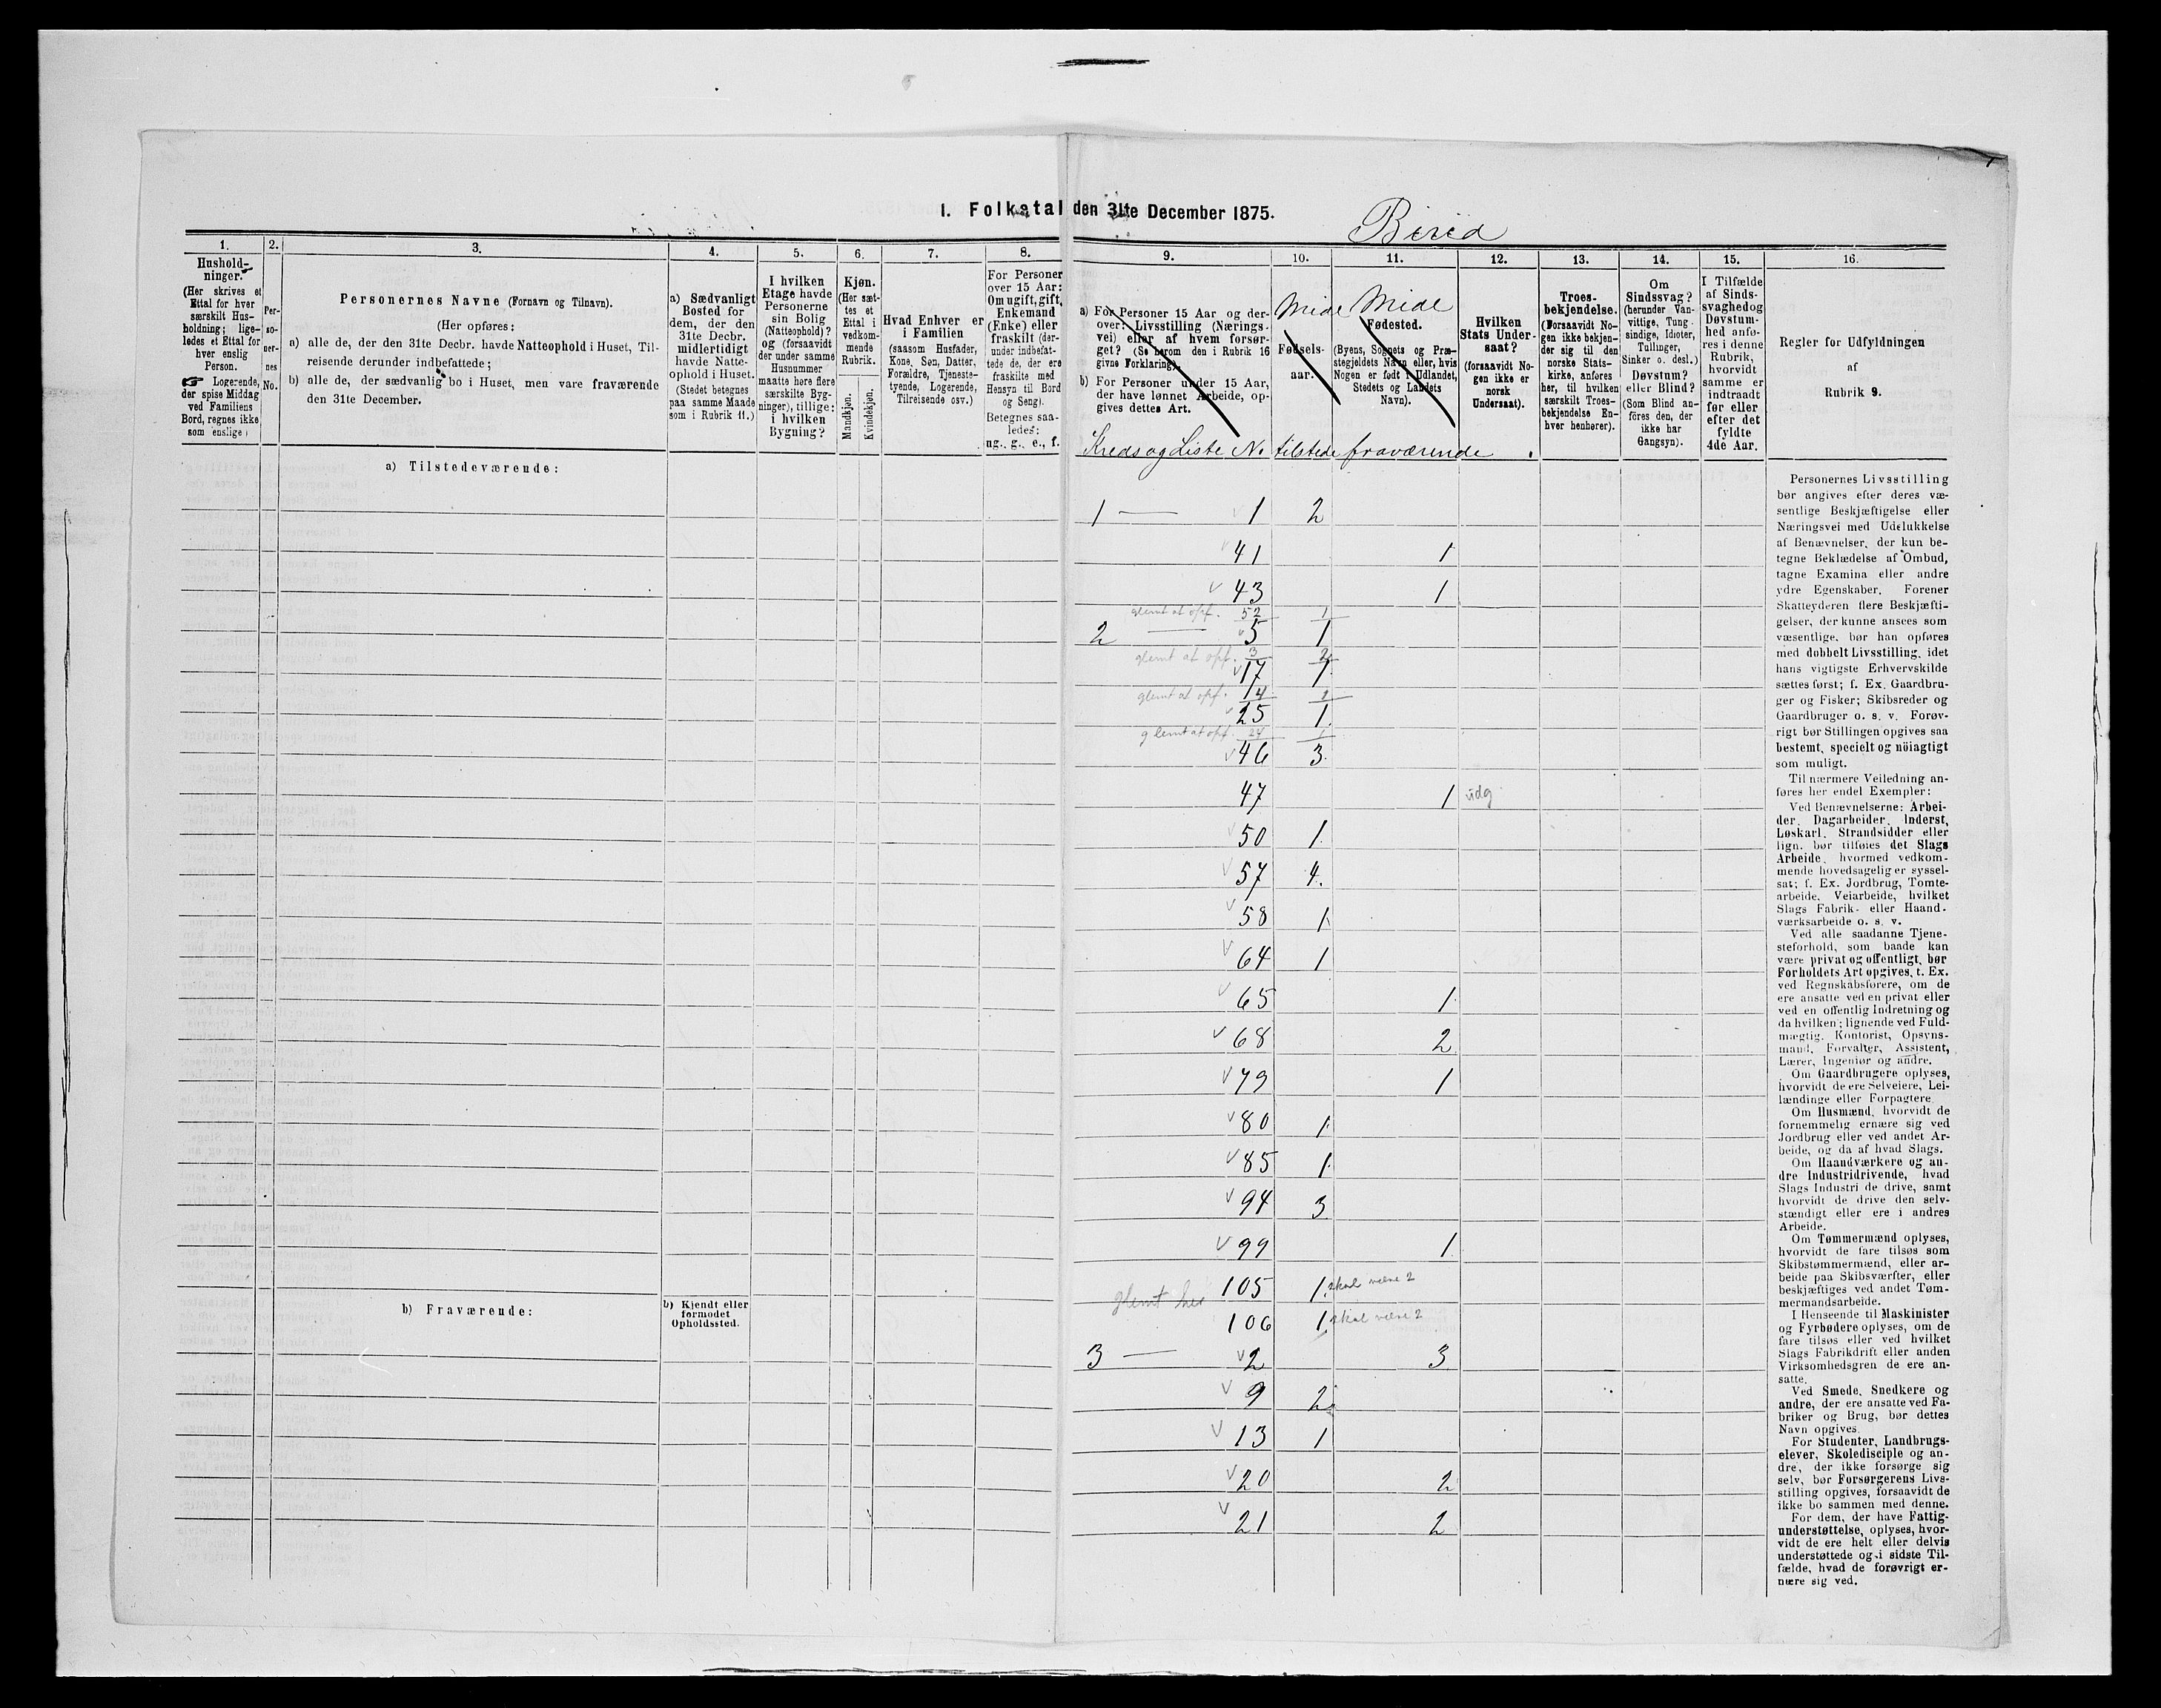 I. Folketal den 31te December 1875.
Birid
1.
Hushold-
ninger.
(Her skrives et
Ettal for hver
særskilt Hus-
holdning; lige-
ledes et Ettal for
hver enslig
Person.
☞ Logerende,
der spise Middag
ved Familiens
Bord, regnes ikke
som enslige)
2.
Per-
so-
ner-
nes
No.
3.
Personernes Navne (Fornavn og Tilnavn).
(Her opføres:
a) alle de, der den 31te Decbr. havde Natteophold i Huset, Til-
reisende derunder indbefattede;
b) alle de, der sædvanlig bo i Huset, men vare fraværende
den 31te December.
4.
a) Sædvanligt
Bosted for
dem, der den
31te Decbr.
midlertidigt
havde Natte-
ophold i Huset.
(Stedet betegnes
paa samme Maade
som i Rubrik 11.)
5.
I hvilken
Etage havde
Personerne
sin Bolig
(Natteophold)?
og (forsaavidt
der under samme
Husnummer
maatte høre flere
særskilte Byg-
ninger), tillige:
i hvilken
Bygning?
6.
Kjøn.
(Her sæt-
tes et
Ettal i
vedkom-
mende
Rubrik.
Mandkjøn.
Kvindekjøn.
7.
Hvad Enhver er
i Familien
(saasom Husfader,
Kone, Søn, Datter,
Forældre, Tjeneste-
tyende, Logerende,
Tilreisende osv.)
8.
For Personer
over 15 Aar:
Om ugift, gift,
Enkemand
(Enke) eller
fraskilt (der-
under indbefat-
tede de, der ere
fraskilte med
Hensyn til Bord
og Seng).
Betegnes saa-
ledes:
ug., g., e., f.
9.
a) For Personer 15 Aar og der-
over: Livsstilling (Nærings-
vei) eller af hvem forsør-
get? (Se herom den i Rubrik 16
givne Forklaring).
b) For Personer under 15 Aar,
der have lønnet Arbeide, op-
gives dettes Art.
10.
Midl
Fødsels-
aar.
11.
Midl
Fødested.
(Byens, Sognets og Præ-
stegjeldets Navn eller, hvis
Nogen er født i Udlandet,
Stedets og Landets
Navn).
12.
Hvilken
Stats Under-
saat?
(forsaavidt No-
gen ikke er
norsk
Undersaat).
13.
Troes-
bekjendelse.
(Forsaavidt No-
gen ikke bekjen-
der sig til den
norske Stats-
kirke, anføres
her, til hvilken
særskilt Troes-
bekjendelse En-
hver henhører).
14.
Om
Sindssvag?
(herunder Van-
vittige, Tung-
sindige, Idioter,
Tullinger,
Sinker o. desl.)
Døvstum?
eller Blind?
(Som Blind an-
føres den, der
ikke har
Gangsyn).
15.
I Tilfælde
af Sinds-
svaghed og
Døvstum-
hed anfø-
res i denne
Rubrik,
hvorvidt
samme er
indtraadt
før eller
efter det
fyldte
4de Aar.
16.
Regler for Udfyldningen
af
Rubrik 9.
Kreds og Liste No tilstede fraværende
a) Tilstedeværende:
1 — 1 2
41 1
43 1
glemt at opf. 52 1
2 — 5 1
glemt at opf. 3 2
17 1
glemt at opf. 14 1
25 1
glemt at opf. 24 1
46 3
47 1 udg
50 1
57 4
58 1
64 1
65 1
68 2
79 1
80 1
85 1
94 3
99 1
105 1 skal være 2
glemt her
106 1 skal være 2
b) Fraværende:
b) Kjendt eller
formodet
Opholdssted.
3 — 2 3
9 2
13 1
20 2
21 2
Personernes Livsstilling
bør angives efter deres væ-
sentlige Beskjæftigelse eller
Næringsvei med Udelukkelse
af Benævnelser, der kun be-
tegne Beklædelse af Ombud,
tagne Examina eller andre
ydre Egenskaber. Forener
Skatteyderen flere Beskjæfti-
gelser, der kunne ansees som
væsentlige, bør han opføres
med dobbelt Livsstilling, idet
hans vigtigste Erhvervskilde
sættes først; f. Ex. Gaardbru-
ger og Fisker; Skibsreder og
Gaardbruger o. s. v. Forøv-
rigt bør Stillingen opgives saa
bestemt, specielt og nöiagtigt
som muligt.
Til nærmere Veiledning an-
føres her endel Exempler:
Ved Benævnelserne: Arbei-
der, Dagarbeider, Inderst,
Løskarl, Strandsidder eller
lign. bør tilføies det Slags
Arbeide, hvormed vedkom-
mende hovedsagelig er syssel-
sat; f. Ex. Jordbrug, Tomte-
arbeide, Veiarbeide, hvilket
Slags Fabrik- eller Haand-
værksarbeide o. s. v.
Ved alle saadanne Tjene-
steforhold, som baade kan
være privat og offentligt, bør
Forholdets Art opgives, t. Ex.
ved Regnskabsførere, om de
ere ansatte ved en privat eller
ved en offentlig Indretning og
da hvilken; lignende ved Fuld-
mægtig, Kontorist, Opsyns-
mand, Forvalter, Assistent,
Lærer, Ingeniør og andre.
Om Gaardbrugere oplyses,
hvorvidt de ere Selveiere, Lei-
lændinge eller Forpagtere.
Om Husmænd, hvorvidt de
fornemmelig ernære sig ved
Jordbrug eller ved andet Ar-
beide, og da af hvad Slags.
Om Haandværkere og an-
dre Industridrivende, hvad
Slags Industri de drive, samt
hvorvidt de drive den selv-
stændigt eller ere i andres
Arbeide.
Om Tømmermænd oplyses,
hvorvidt de fare tilsøs som
Skibstømmermænd, eller ar-
beide paa Skibsværfter, eller
beskjæftiges ved andet Tøm-
mermandsarbeide.
I Henseende til Maskinister
og Fyrbødere oplyses, om de
fare tilsøs eller ved hvilket
Slags Fabrikdrift eller anden
Virksomhedsgren de ere an-
satte.
Ved Smede, Snedkere og
andre, der ere ansatte ved Fa-
briker og Brug, bør dettes
Navn opgives.
For Studenter, Landbrugs-
elever, Skoledisciple og an-
dre, der ikke forsørge sig
selv, bør Forsørgerens Livs-
stilling opgives, forsaavidt de
ikke bo sammen med denne.
For dem, der have Fattig-
understøttelse, oplyses, hvor-
vidt de ere helt eller delvis
understøttede og i sidste Til-
fælde, hvad de forøvrigt er-
nære sig ved.